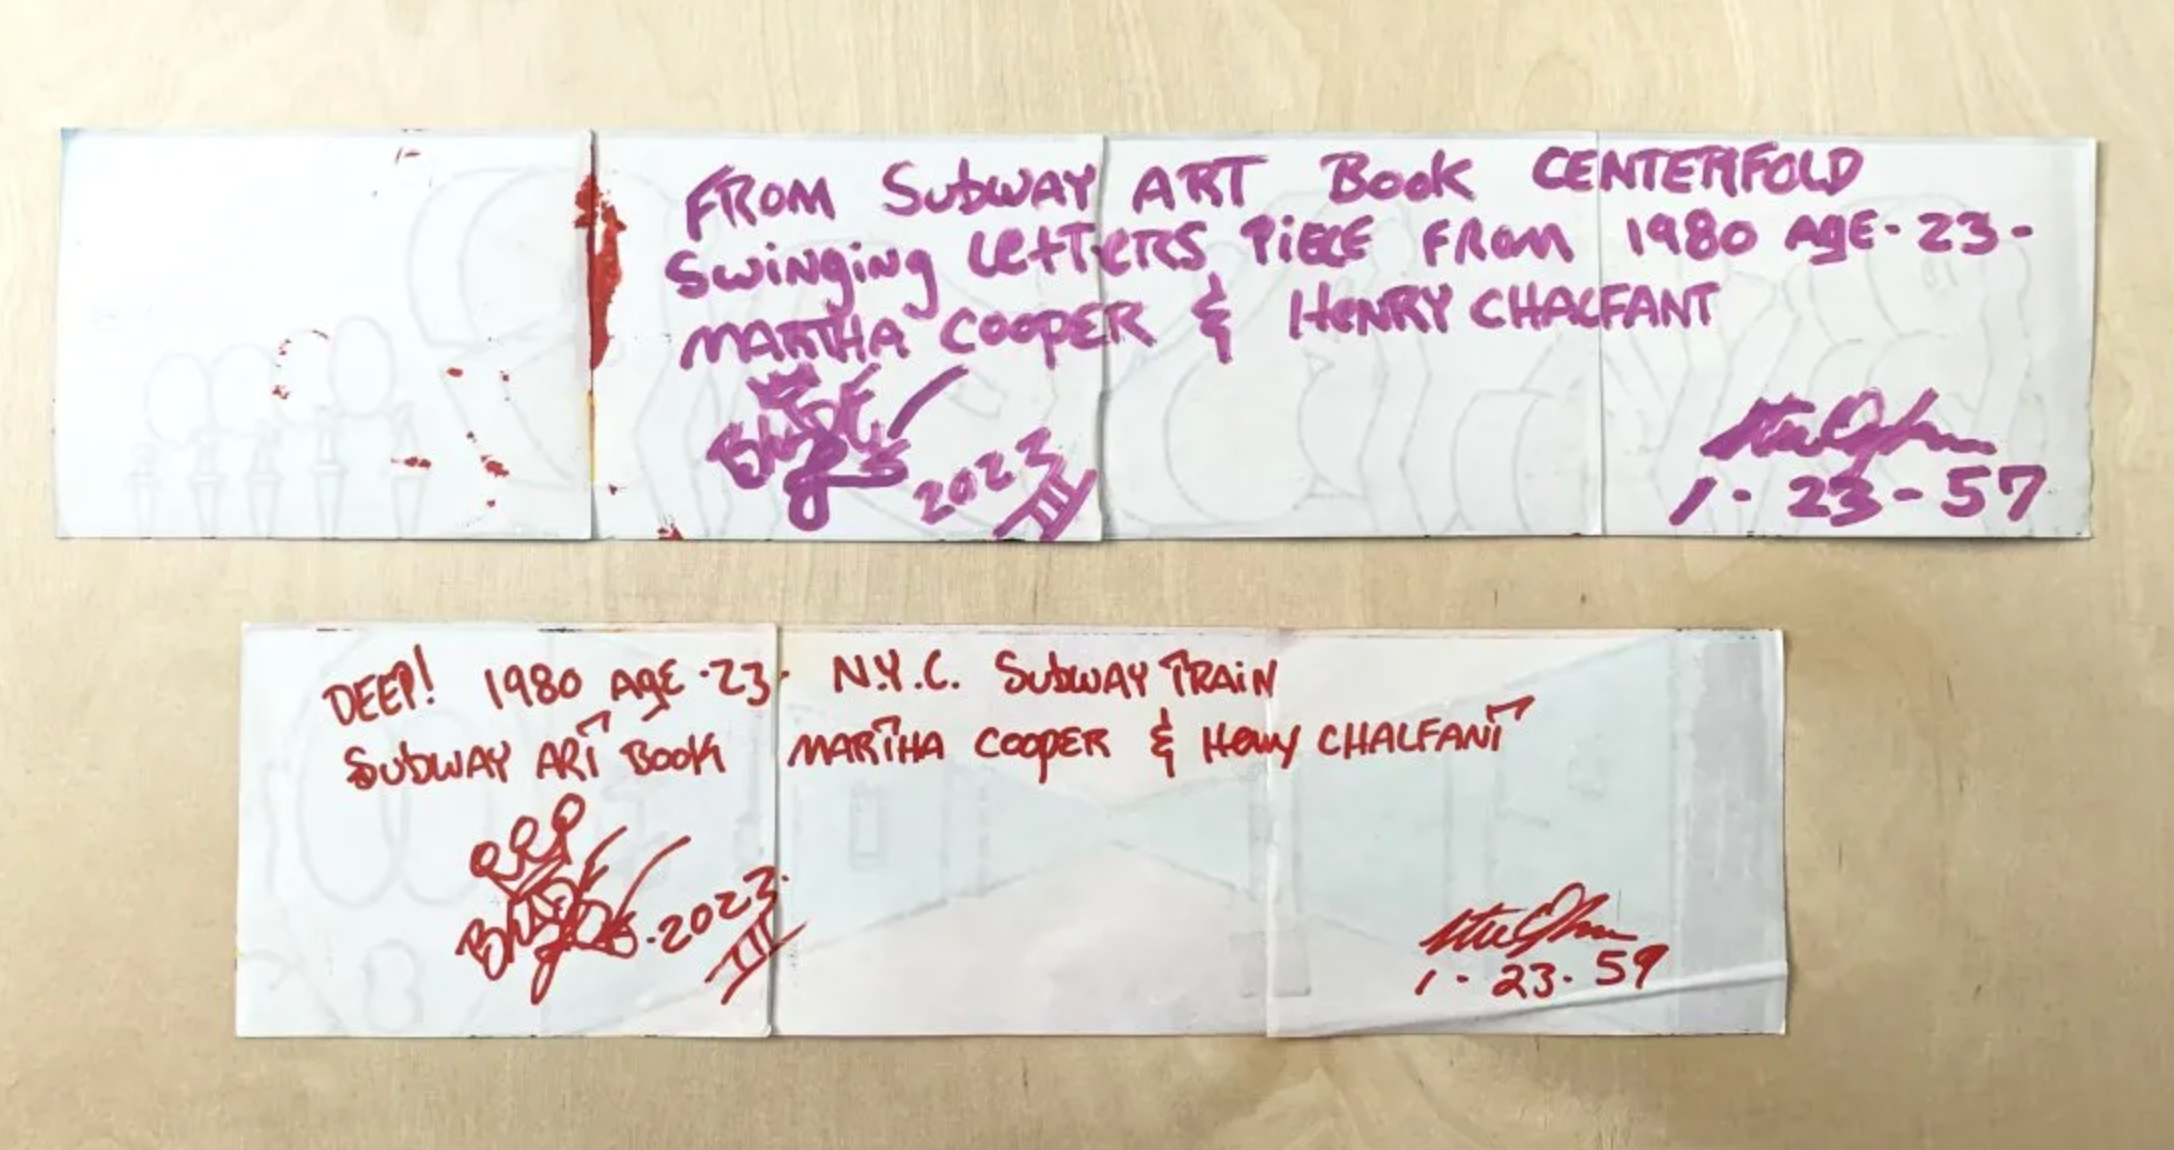 FROM SUbWAY ART Book CENTERFOLD
SWinging LETTERS PiECE FROM 1980 AgE-23-
MARTHA COOPER & HENRY CHALFANT
BLADE
2023
III
1-23-57
DEEP! 1980 AgE-23· N.Y.C. SUbWAY TRAiN
SUbWAY ART Book MARTHA COOPER & Henry CHALFANT
BLADE
.2023.
III
1-23-59